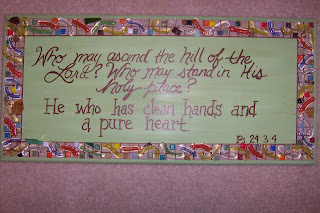 Who may ascend the hill of the
Lord? Who may stand in His
holy place?
He who has clean hands and
a pure heart.
Ps. 24:3-4